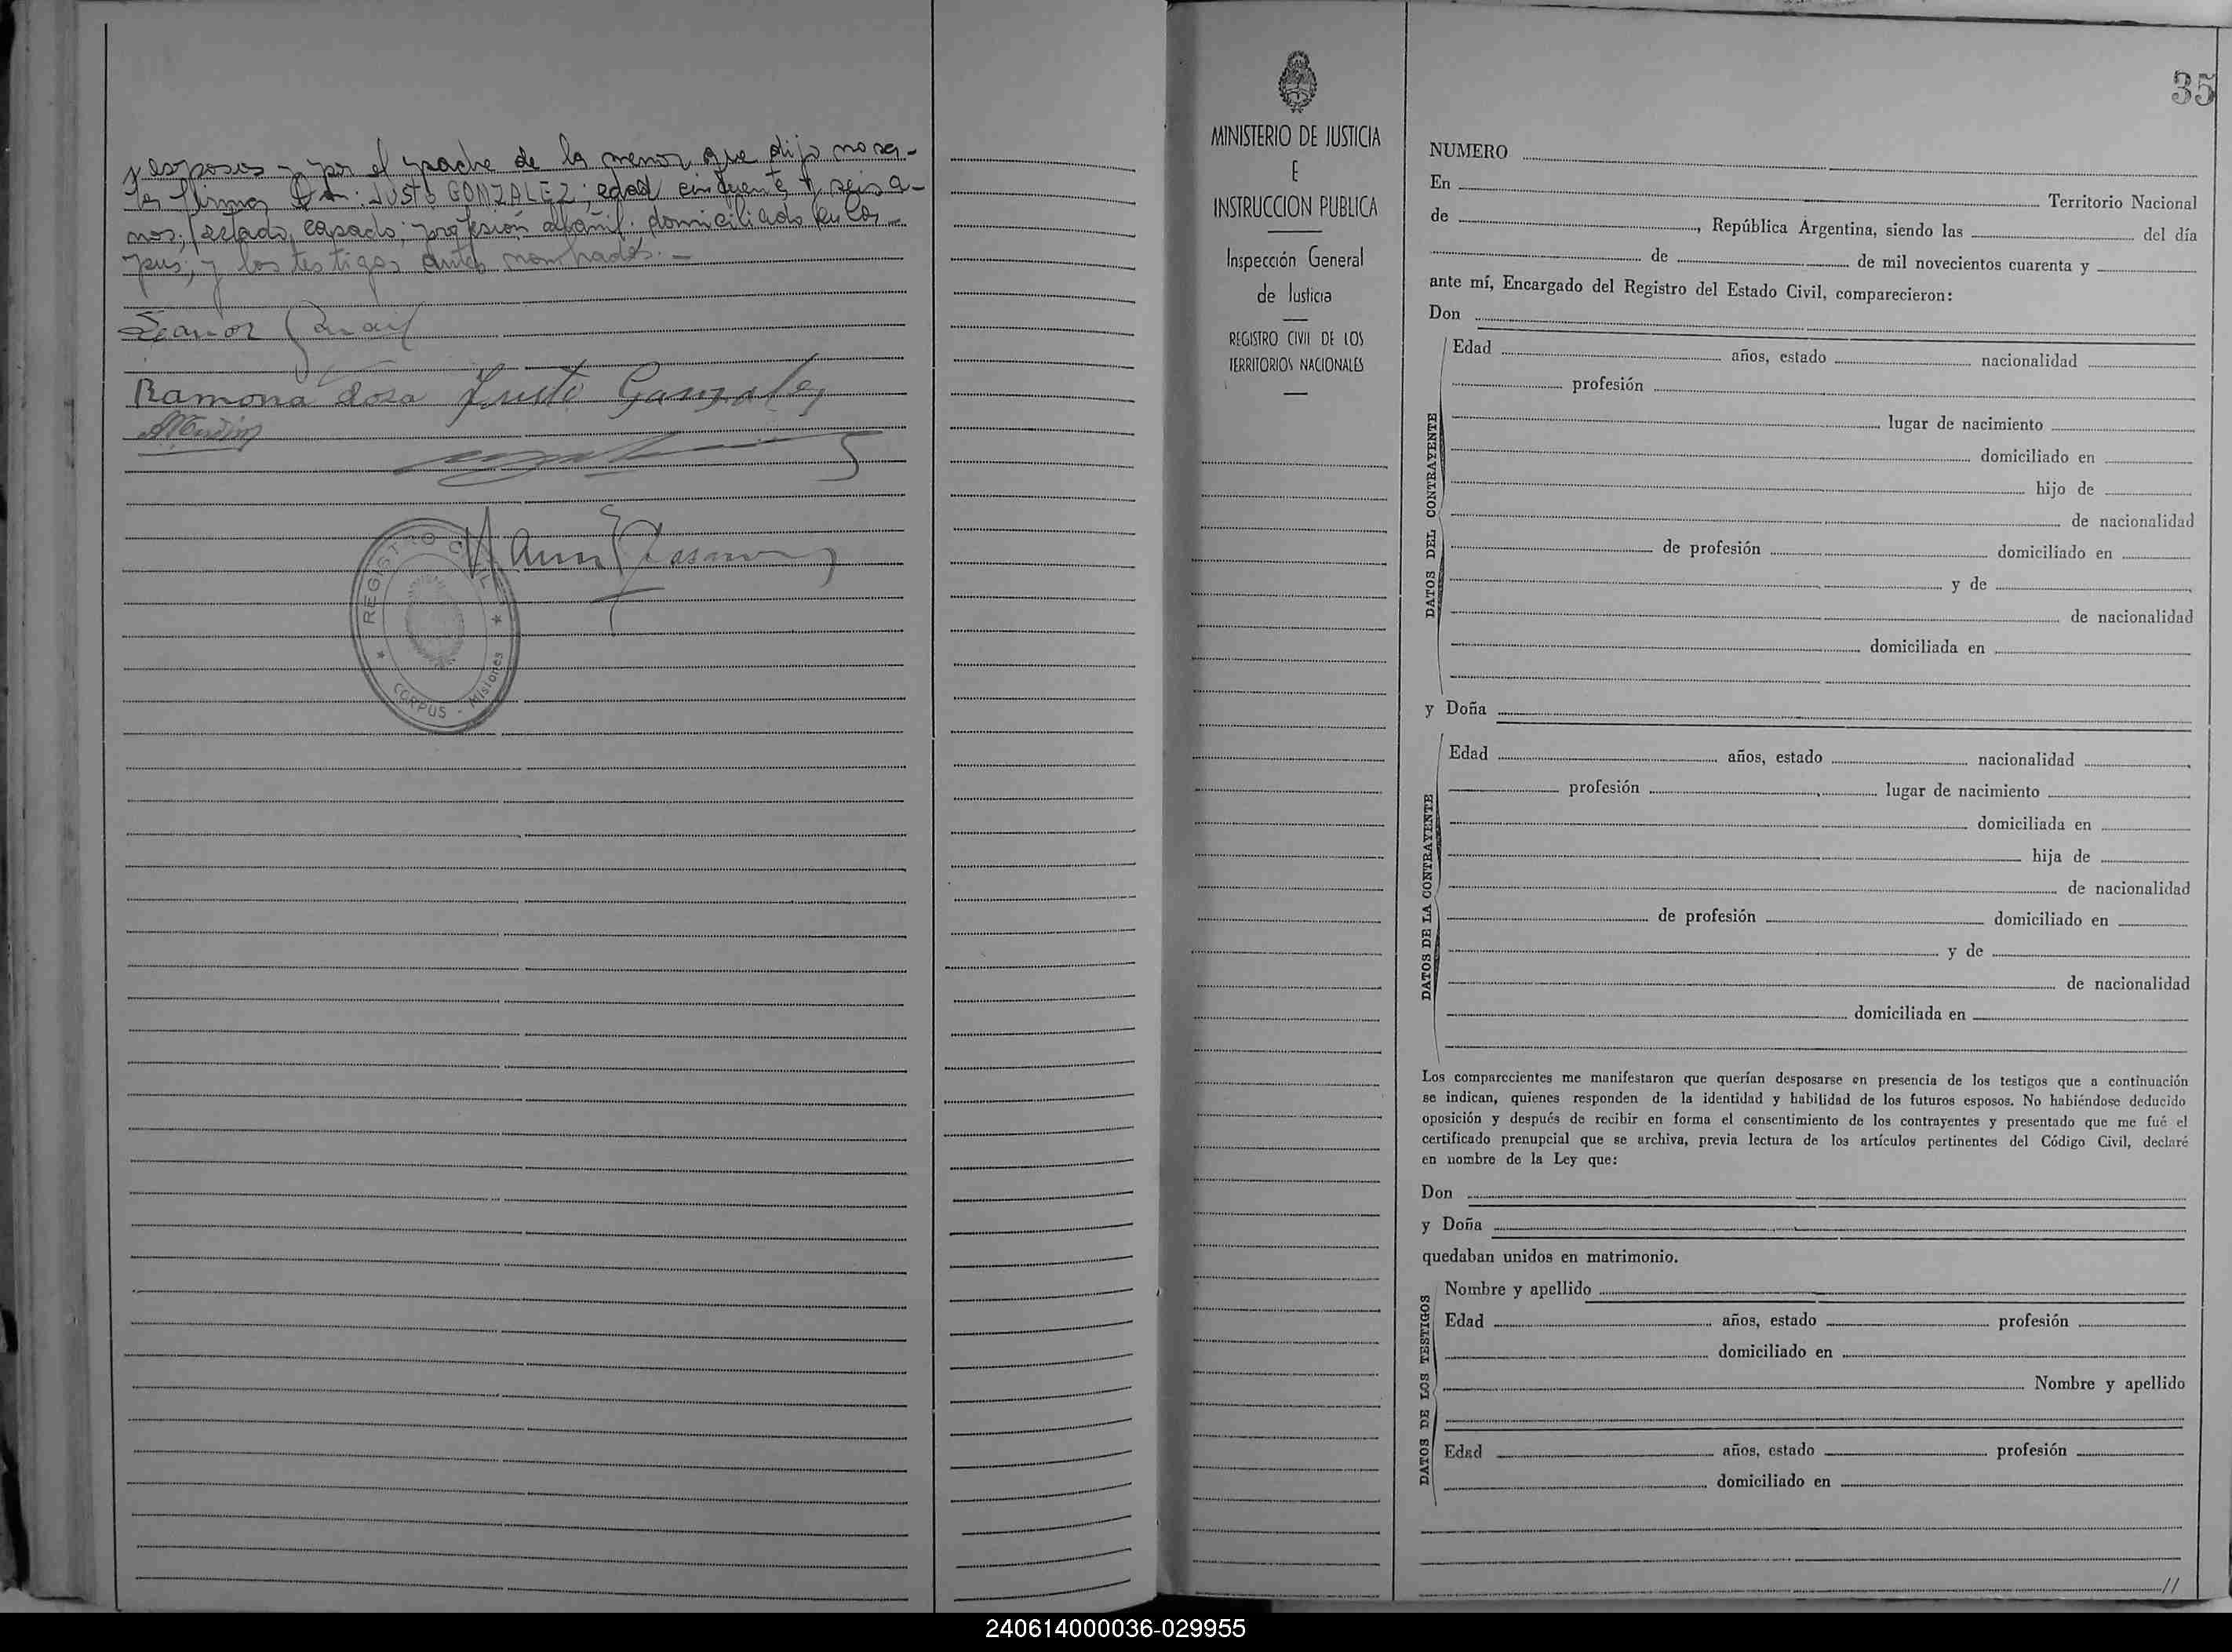 y esposos y por el padre de la menor que dijo no sa-
firma Don: JUSTO GONZALEZ; edad cincuenta y seis a-
nos; estado, casado; profesión albañil. domiciliado en Cor-
pus; y los testigos antes nombrados.-
Ramona Rosa Justo Gonzalez
REGISTRO CIVIL
CORPUS - Misiones
35
MINISTERIO DE JUSTICIA
E
INSTRUCCION PUBLICA
Inspección General
de Justicia
REGISTRO CIVIL DE LOS
TERRITORIOS NACIONALES
NUMERO
En Territorio Nacional
de , República Argentina, siendo las del día
de de mil novecientos cuarenta y
ante mí, Encargado del Registro del Estado Civil, comparecieron:
Don
DATOS DEL CONTRAYENTE
Edad años, estado nacionalidad
profesión
lugar de nacimiento
domiciliado en
hijo de
de nacionalidad
de profesión domiciliado en
y de
de nacionalidad
domiciliada en
y Doña
DATOS DE LA CONTRAYENTE
Edad años, estado nacionalidad
profesión lugar de nacimiento
domiciliada en
hija de
de nacionalidad
de profesión domiciliado en
y de
de nacionalidad
domiciliada en
Los comparecientes me manifestaron que querían desposarse en presencia de los testigos que a continuación
se indican, quienes responden de la identidad y habilidad de los futuros esposos. No habiéndose deducido
oposición y después de recibir en forma el consentimiento de los contrayentes y presentado que me fué el
certificado prenupcial que se archiva, previa lectura de los artículos pertinentes del Código Civil, declaré
en nombre de la Ley que:
Don
y Doña
quedaban unidos en matrimonio.
DATOS DE LOS TESTIGOS
Nombre y apellido
Edad años, estado profesión
domiciliado en
Nombre y apellido
Edad años, estado profesión
domiciliado en
//
240614000036-029955